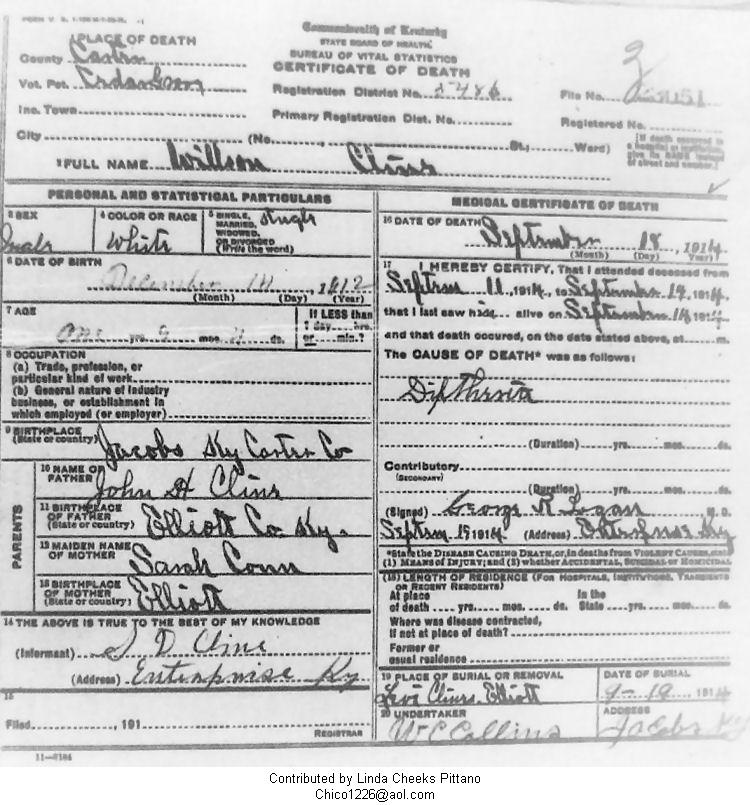 Commonwealth of Kentucky
STATE BOARD OF HEALTH
BUREAU OF VITAL STATISTICS
CERTIFICATE OF DEATH
1 PLACE OF DEATH
County Carter
Vot. Pct.
Inc. Town
City (No. St., Ward)
Registration District No.
File No.
Primary Registration Dist. No.
Registered No.
[If death occurred in a hospital or institution, give its NAME instead of street and number.]
2 FULL NAME Willson Cline
PERSONAL AND STATISTICAL PARTICULARS
3 SEX Male
4 COLOR OR RACE White
5 SINGLE, MARRIED, WIDOWED, OR DIVORCED (Write the word) single
6 DATE OF BIRTH
December 14, 1912
(Month) (Day) (Year)
7 AGE
one yrs. 9 mos. ds.
If LESS than 1 day....hrs. or....min.?
8 OCCUPATION
(a) Trade, profession, or particular kind of work
(b) General nature of industry business, or establishment in which employed (or employer)
9 BIRTHPLACE (State or country) Jacobs Ky Carter Co
PARENTS
10 NAME OF FATHER John H Cline
11 BIRTHPLACE OF FATHER (State or country) Elliott Co Ky.
12 MAIDEN NAME OF MOTHER Sarah Conn
13 BIRTHPLACE OF MOTHER (State or country) Elliott
14 THE ABOVE IS TRUE TO THE BEST OF MY KNOWLEDGE
(Informant) D Cline
(Address) Enterprise Ky
15
Filed, 191
REGISTRAR
11-8184
MEDICAL CERTIFICATE OF DEATH
16 DATE OF DEATH
September 18, 1914
(Month) (Day) (Year)
17 I HEREBY CERTIFY, That I attended deceased from
Septem 11, 1914, to September 14, 1914,
that I last saw him alive on September 14, 1914
and that death occured, on the date stated above, at m.
The CAUSE OF DEATH* was as follows:
Diptheria
(Duration) yrs. mos. ds.
Contributory
(SECONDARY)
(Duration) yrs. mos. ds.
(Signed) George R Logan M. D.
Septem 19 1914 (Address) Enterprise Ky
*State the DISEASE CAUSING DEATH, or, in deaths from VIOLENT CAUSES, state (1) MEANS OF INJURY; and (2) whether ACCIDENTAL, SUICIDAL or HOMICIDAL
(18) LENGTH OF RESIDENCE (FOR HOSPITALS, INSTITUTIONS, TRANSIENTS OR RECENT RESIDENTS)
At place of death yrs. mos. ds. In the State yrs. mos. ds.
Where was disease contracted, if not at place of death?
Former or usual residence
19 PLACE OF BURIAL OR REMOVAL
Levi Clines Elliott
DATE OF BURIAL
9-19 1914
20 UNDERTAKER
W C Collins
ADDRESS
Jacobs Ky
Contributed by Linda Cheeks Pittano
Chico1226@aol.com